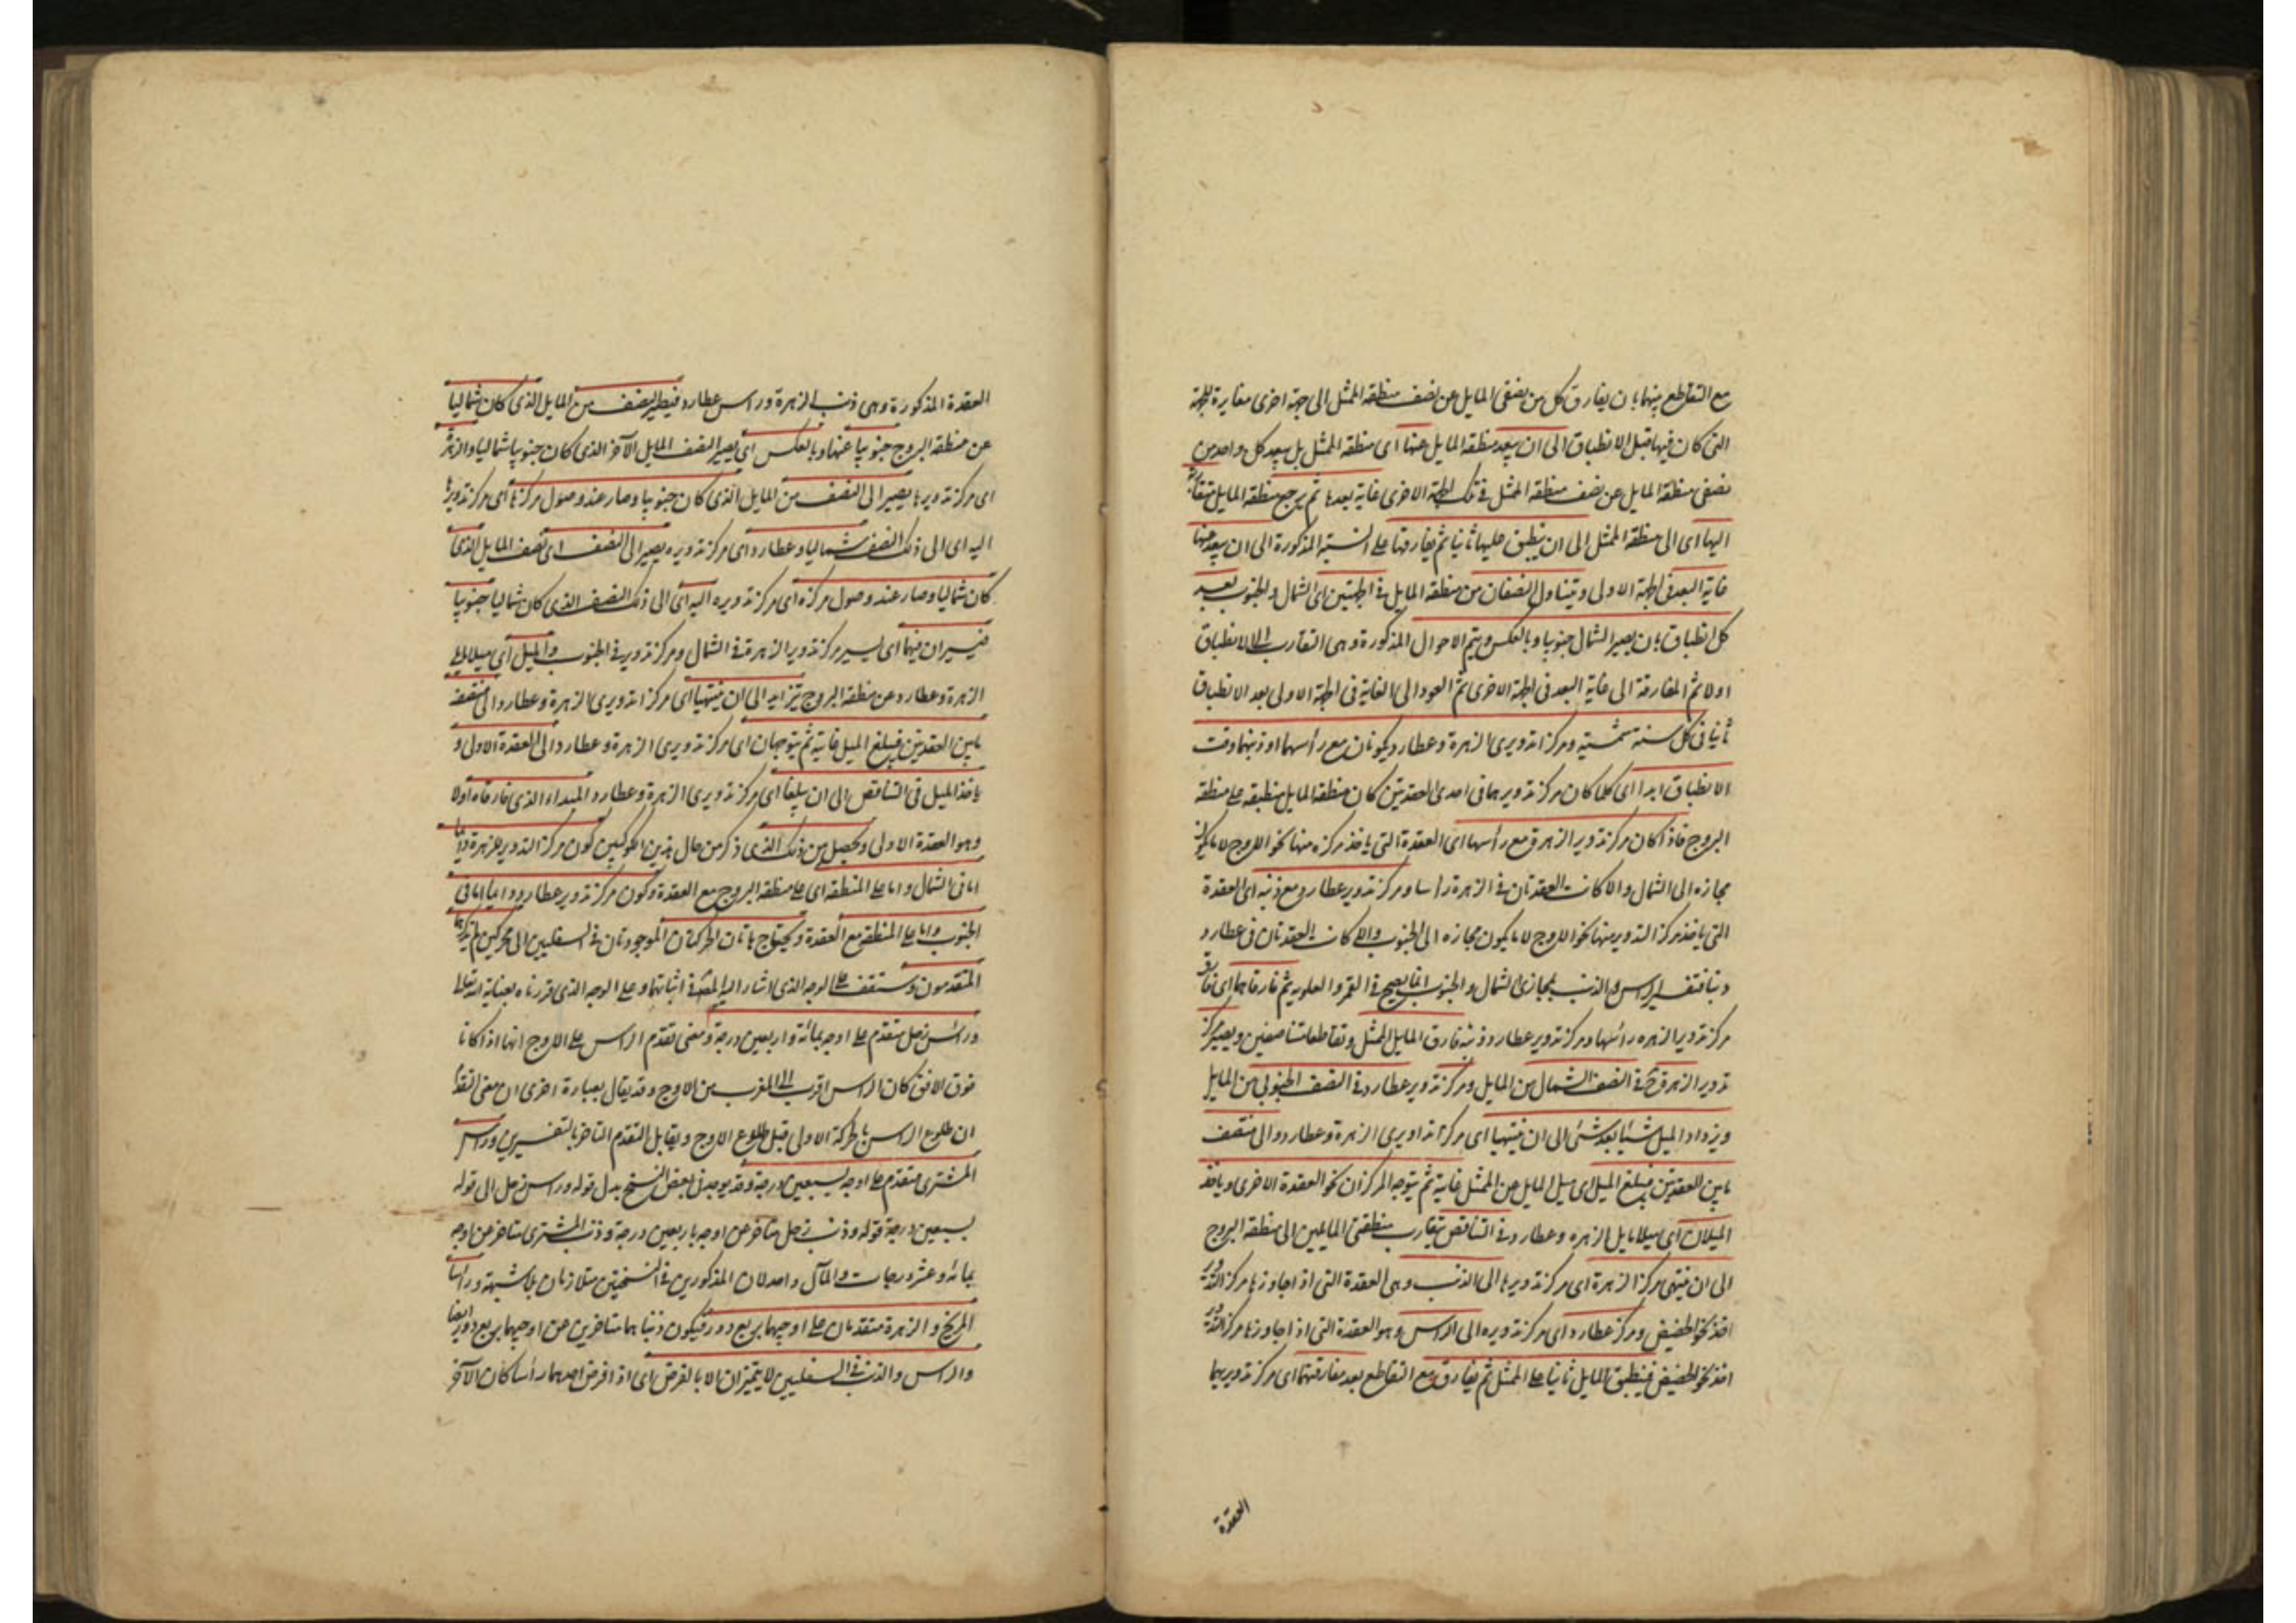 مع التقاطع بينهما بان يفارق كل من نصفى المايل عن نصف منطقة الممثل الى جهة اخرى مغايرة للجهة
التى كان فيها قبل الانطباق الى ان يبعد منطقة المايل عنها اى منطقة الممثل بل يبعد كل واحد من
نصفى منطقة المايل عن نصف منطقة الممثل فى تلك الجهة الاخرى غاية بعدها ثم يرجع منطقة المايل متقاربة
اليها اى الى منطقة الممثل الى ان ينطبق عليها ثانيا ثم يفارقها على النسبة المذكورة الى ان يبعد عنها
غاية البعد فى الجهة الاولى ويتبادل النصفان من منطقة المايل فى الجهتين اى الشمال والجنوب بعد
كل انطباق بان يصير الشمال جنوبيا وبالعكس ويتم الاحوال المذكورة وهى التقارب الى الانطباق
اولا ثم المفارقة الى غاية البعد فى الجهة الاخرى ثم العود الى الغاية فى الجهة الاولى بعد الانطباق
ثانيا فى كل سنة شمسية ومركزا تدويرى الزهرة وعطارد يكونان مع رأسهما او ذنبهما وقت
الانطباق ابدا اى كلما كان مركز تدويرهما فى احدى العقدتين كان منطقة المايل منطبقة على منطقة
البروج فاذا كان مركز تدوير الزهرة مع رأسها اى العقدة التى ياخذ مركزه منها نحو الاوج لا ما يكون
مجازه الى الشمال والا كانت العقدتان فى الزهرة راسا ومركز تدوير عطارد مع ذنبه اى العقدة
التى ياخذ مركز التدوير منها نحو الاوج لا ما يكون مجازه الى الجنوب والا كانت العقدتان فى عطارد
ذنبا فتفسير الراس والذنب بمجازى الشمال والجنوب انما يصح فى القمر والعلوية ثم فارقاهما اى فارق
مركز تدوير الزهره رأسها ومركز تدوير عطارد ذنبه فارق المايل الممثل وتقاطعا متناصفين ويصير مركز
تدوير الزهرة فى النصف الشمال من المايل ومركز تدوير عطارد فى النصف الجنوبى من المايل
ويزداد الميل شيئا بعد شئ الى ان ينتهيا اى مركزا تداويرى الزهرة وعطارد والى منتصف
مابين العقدتين فيبلغ الميل اى ميل المايل عن الممثل غايته ثم يتوجه المركزان نحو العقدة الاخرى وياخذ
الميلان اى ميلا مايل الزهره وعطارد فى التناقص بتقارب منطقتى المايلين الى منطقة البروج
الى ان ينتهى مركز الزهرة اى مركز تدويرها الى الذنب وهى العقدة التى اذا جاوزها مركز التدوير
اخذ نحو الحضيض ومركز عطارد اى مركز تدويره الى الراس وهو العقدة التى اذا جاوزها مركز التدوير
اخذ نحو الحضيض فينطبق المايل ثانيا على الممثل ثم يفارق مع التقاطع بعد مفارقتهما اى مركز تدويريهما
العقدة
العقدة المذكورة وهى ذنب الزهرة وراس عطارد فيصير النصف من المايل الذى كان شماليا
عن منطقة البروج جنوبيا عنها وبالعكس اى يصير النصف المايل الآخر الذى كان جنوبيا شماليا والزهرة
اى مركز تدويرها يصير الى النصف من المايل الذى كان جنوبيا وصار عند وصول مركزها اى مركز تدويرها
اليه اى الى ذلك النصف شماليا وعطارد اى مركز تدويره يصير الى النصف اى نصف المايل الذى
كان شماليا وصار عند وصول مركزه اى مركز تدويره اليه اى الى ذلك النصف الذى كان شماليا جنوبيا
فيسيران فيهما اى يسير مركز تدوير الزهرة فى الشمال ومركز تدوير فى الجنوب والميل اى ميلا مايلى
الزهرة وعطارد عن منطقة البروج يتزايد الى ان ينتهيا اى مركزا تدويرى الزهرة وعطارد الى منتصف
مابين العقدتين فيبلغ الميل غايته ثم يتوجهان اى مركز تدويرى الزهرة وعطارد الى العقدة الاولى و
ياخذ الميل فى التناقص الى ان يبلغا اى مركز تدويرى الزهرة وعطارد المبداء الذى فارقاه اولا
وهو العقدة الاولى ويحصل من ذلك الذى ذكر من حال هذين الكوكبين كون مركز التدوير للزهرة دائما
اما فى الشمال واما على المنطقة اى على منطقة البروج مع العقدة وكون مركز تدوير عطارد دائما اما فى
الجنوب واما على المنطقة مع العقدة ويحتاج هاتان الحركتان الموجودتان فى السفليين الى محركين لم يذكرهما
المتقدمون وستقف على الوجه الذى اشار اليه المصنف فى اثباتهما وعلى الوجه الذى قررناه بعناية الله تعالى
وراس زحل متقدم على اوجه بمائة واربعين درجة ومعنى تقدم الراس على الاوج انهما اذا كانا
فوق الافق كان الراس اقرب الى المغرب من الاوج وقد يقال بعبارة اخرى ان معنى التقدم
ان طلوع الراس بالحركة الاولى قبل طلوع الاوج ويقابل التقدم التاخر بالتفسيرين وراس
المشترى متقدم على اوجه بسبعين درجة وقد يوجد فى بعض النسخ بدل قوله وراس زحل الى قوله
بسبعين درجة قوله وذنب زحل متاخر عن اوجه باربعين درجة وذنب المشترى متاخر عن اوجه
بمائة وعشر درجات والمآل واحد لان المذكورين فى النسختين متلازمان بلا شبهة وراسا
المريخ والزهرة متقدمان على اوجيهما بربع دور فيكون ذنباهما متاخرين عن اوجيهما بربع دور ايضا
والراس والذنب فى السفليين لا يتميزان الا بالفرض اى اذا فرض احدهما رأسا كان الآخر